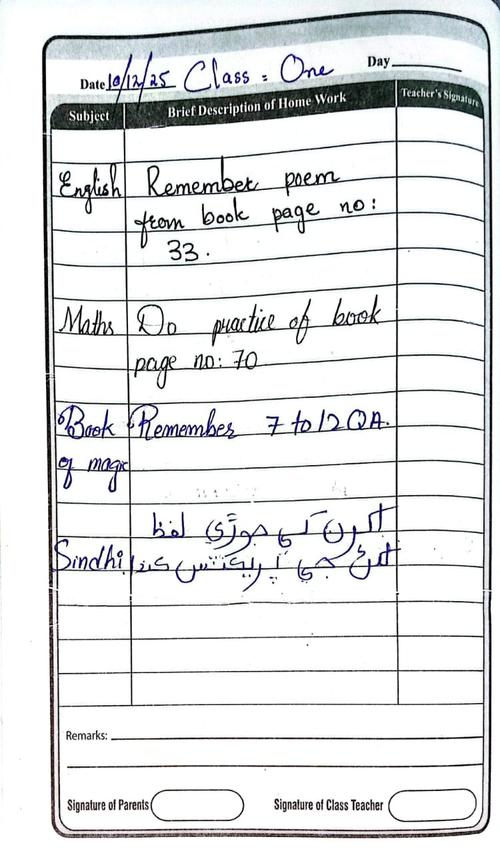 Date 10/12/25 Class = One Day
Subject Brief Description of Home Work Teacher's Signature
English Remember poem
from book page no:
33.
Maths Do practice of book
page no: 70
Book Remember 7 to 12 QA.
of magic
اکرن کي جوڙي لفظ
Sindhi لکڻ جي پريڪٽس ڪندا
Remarks:
Signature of Parents Signature of Class Teacher